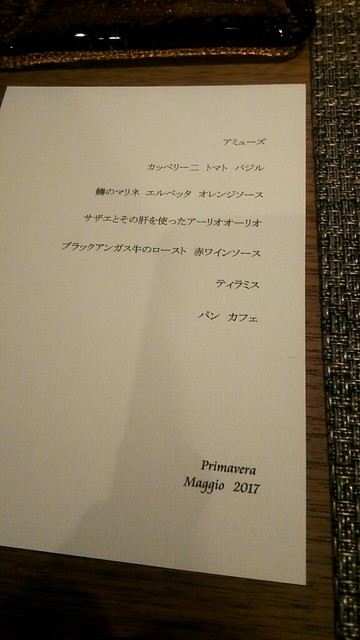 アミューズ
カッペリーニ トマト バジル
鱒のマリネ エルベッタ オレンジソース
サザエとその肝を使ったアーリオオーリオ
ブラックアンガス牛のロースト 赤ワインソース
ティラミス
パン カフェ
Primavera
Maggio 2017